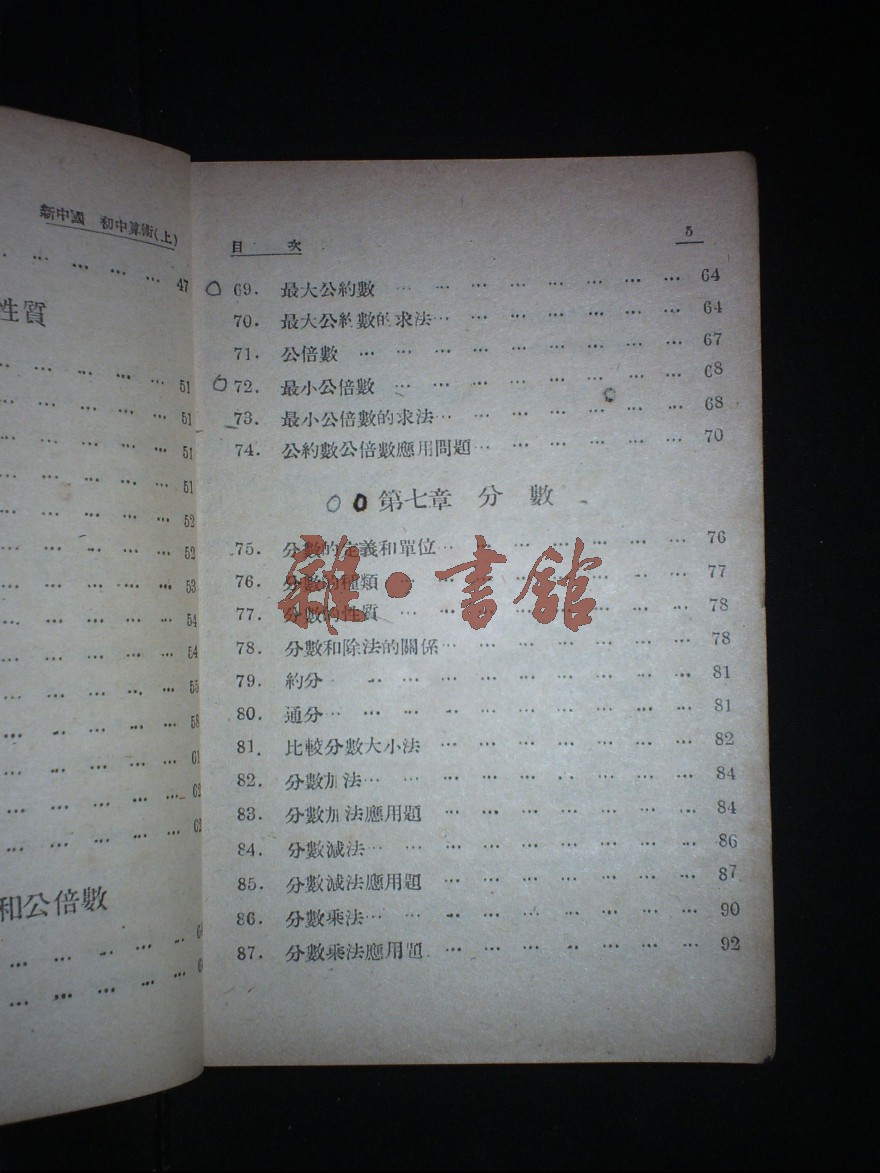 新中國 初中算術(上)
47
性質
51
51
51
51
52
52
53
54
54
55
58
61
62
62
和公倍數
目 次 5
69. 最大公約數 … … … … … … … … 64
70. 最大公約數的求法… … … … … … … 64
71. 公倍數 … … … … … … … … … 67
72. 最小公倍數 … … … … … … … … 68
73. 最小公倍數的求法… … … … … … … 68
74. 公約數公倍數應用問題… … … … … … 70
第七章 分 數
75. 分數的定義和單位… … … … … … … 76
76. 分數的種類 … … … … … … … … 77
77. 分數的性質 … … … … … … … … 78
78. 分數和除法的關係… … … … … … … 78
79. 約分 … … … … … … … … … 81
80. 通分… … … … … … … … … … 81
81. 比較分數大小法 … … … … … … … 82
82. 分數加法… … … … … … … … … 84
83. 分數加法應用題 … … … … … … … 84
84. 分數減法… … … … … … … … … 86
85. 分數減法應用題 … … … … … … … 87
86. 分數乘法… … … … … … … … … 90
87. 分數乘法應用題 … … … … … … … 92
雜·書館